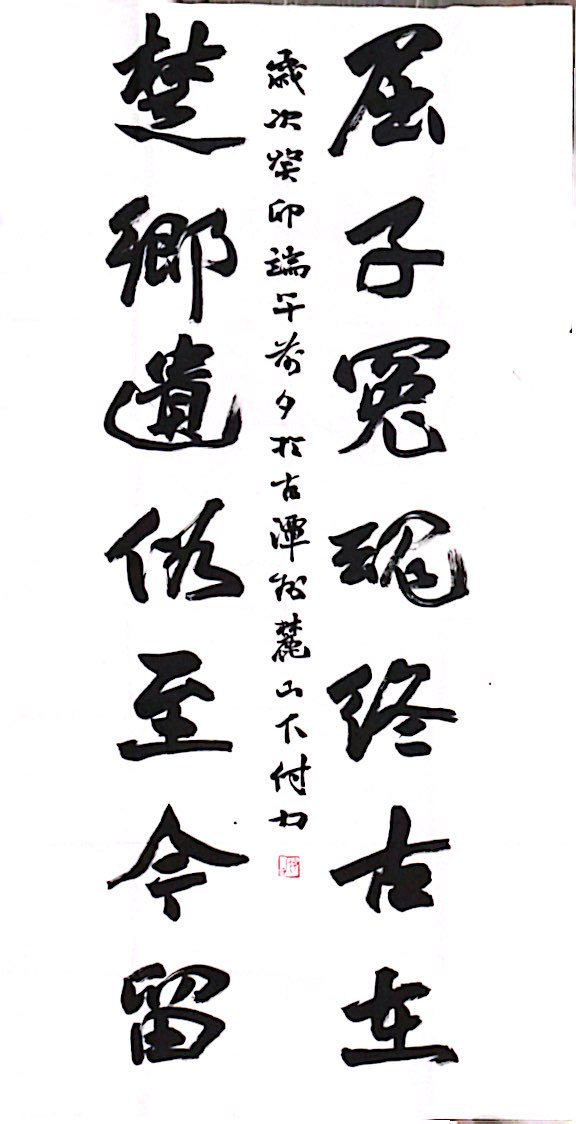 屈子冤魂终古在
歲次癸卯端午前夕於古潭州麓山下付力
楚鄉遺俗至今留